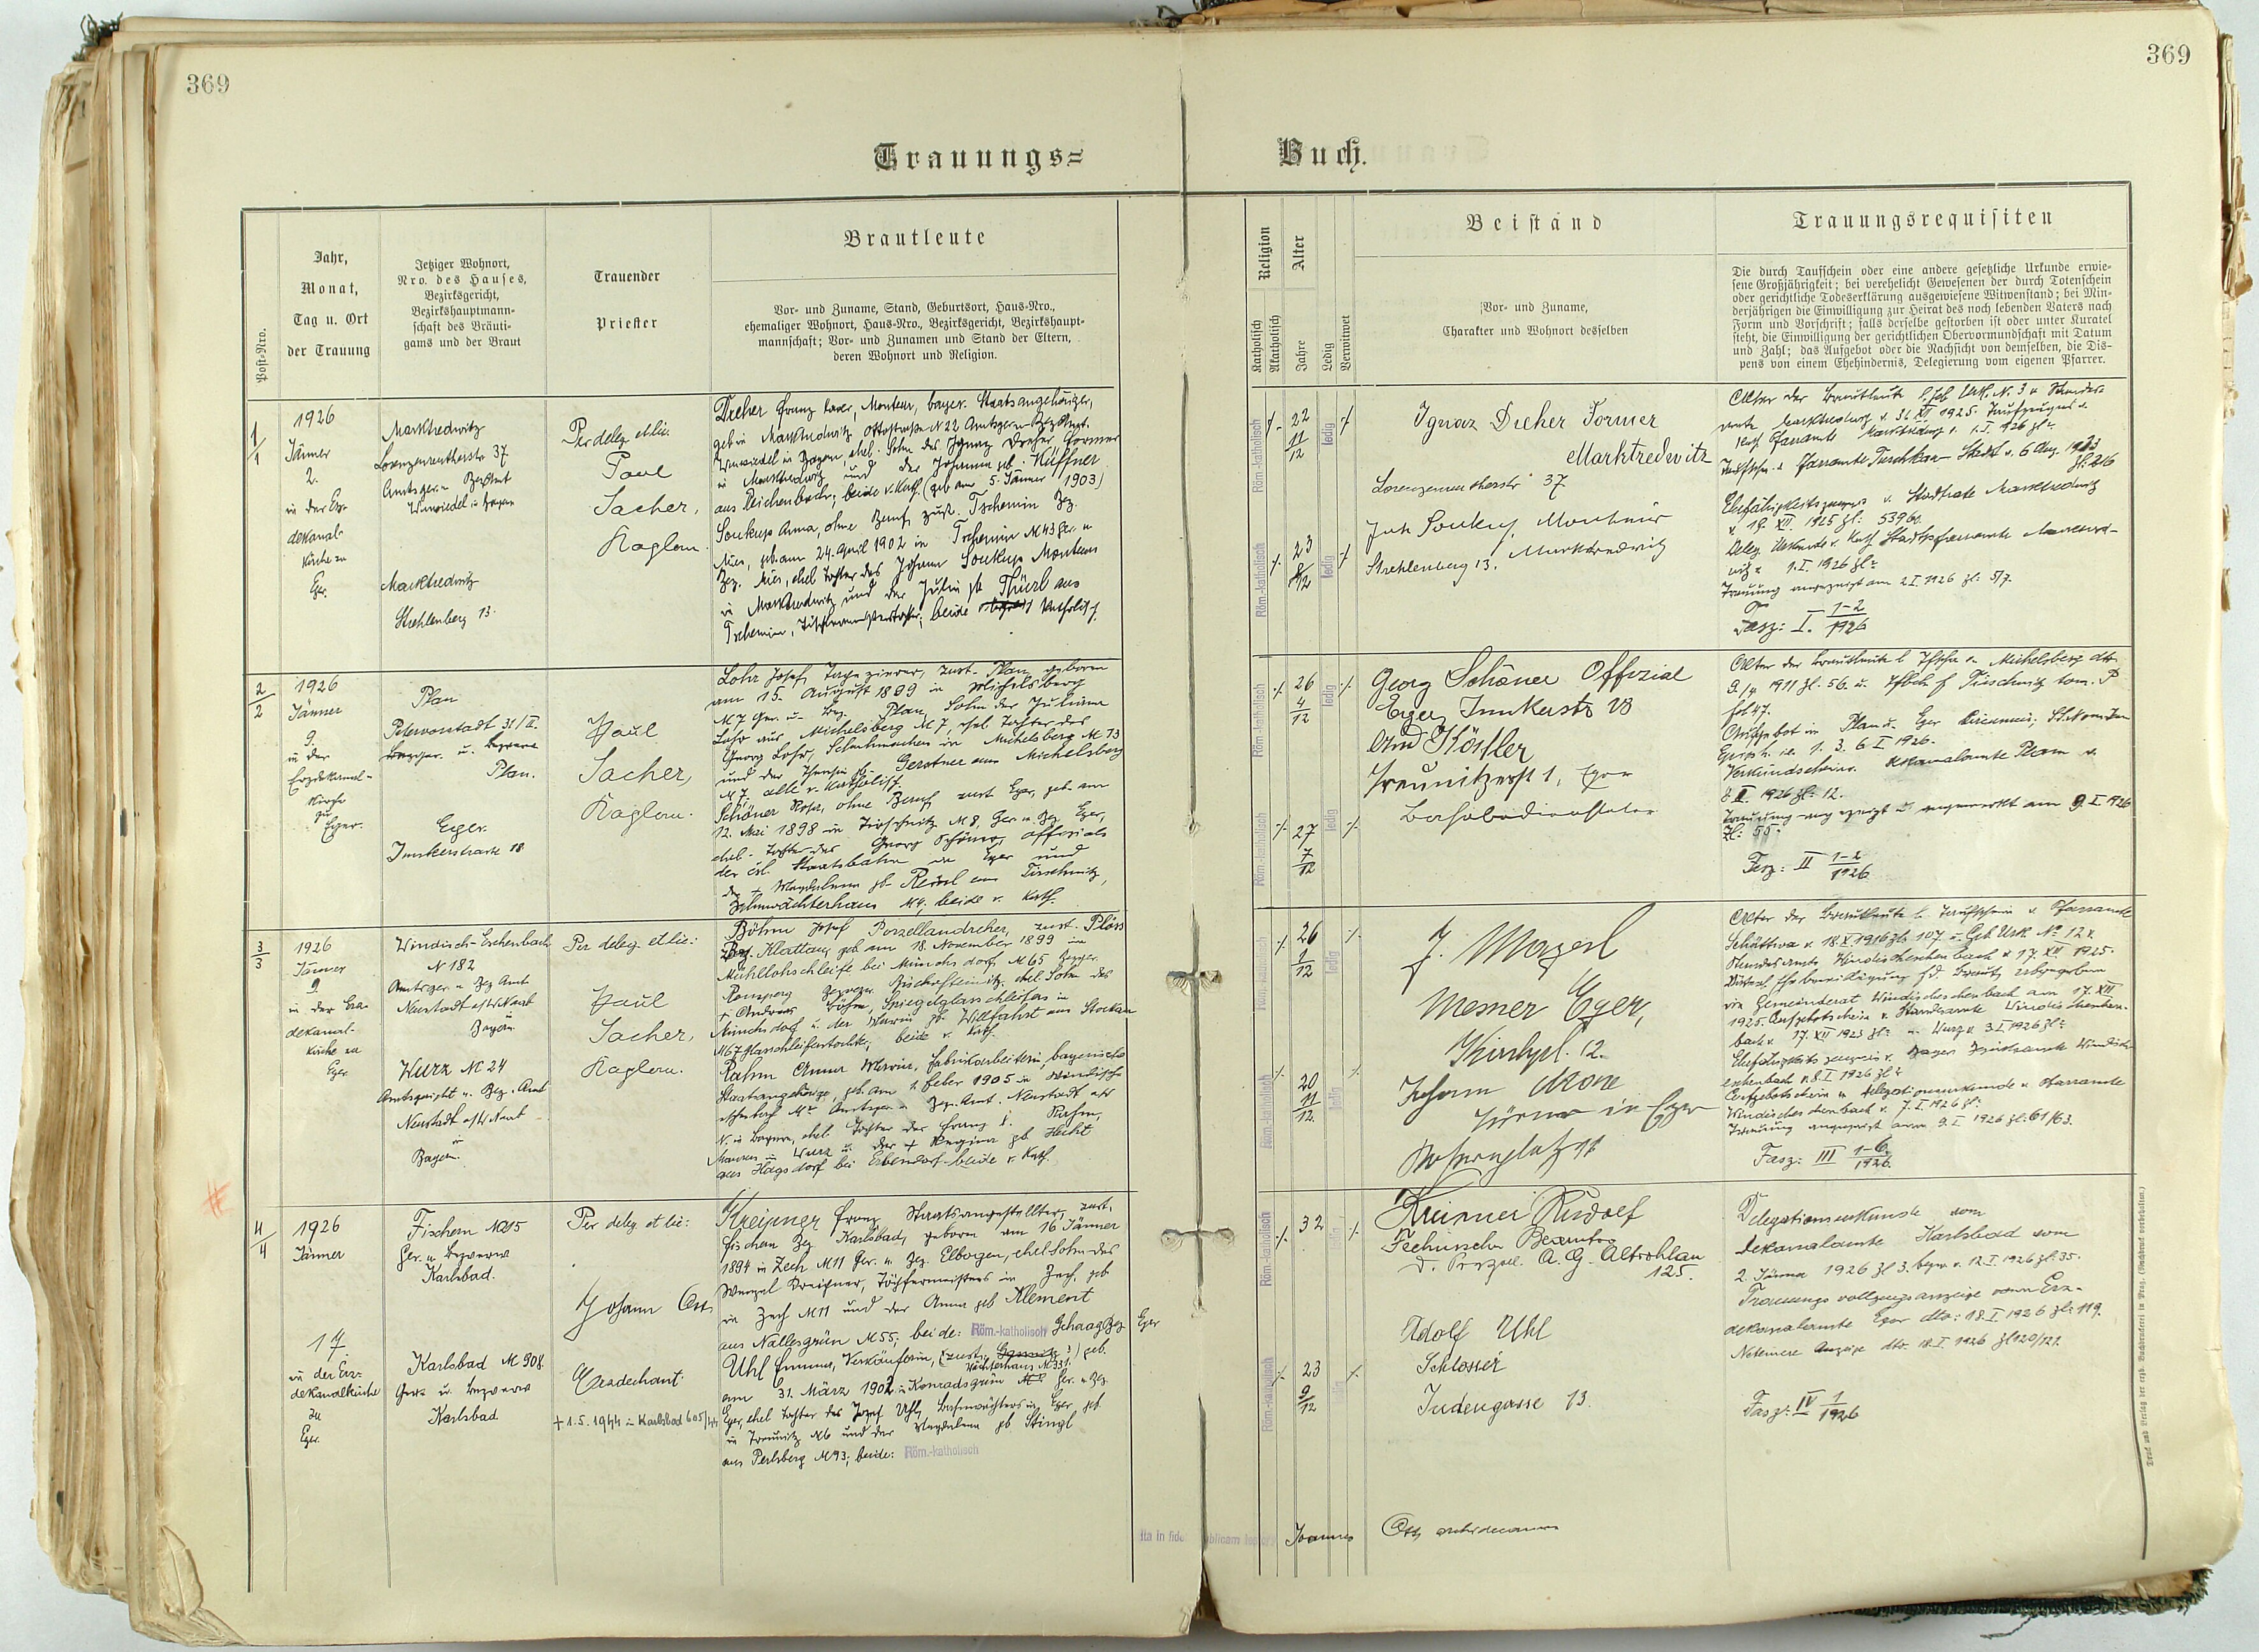 369
369
Trauungs=
Buch.
Post-Nro.
Jahr,
Monat,
Tag u. Ort
der Trauung
Jetziger Wohnort,
Nro. des Hauses,
Bezirksgericht,
Bezirkshauptmann-
schaft des Bräuti-
gams und der Braut
Trauender
Priester
Brautleute
Vor- und Zuname, Stand, Geburtsort, Haus-Nro.,
ehemaliger Wohnort, Haus-Nro., Bezirksgericht, Bezirkshaupt-
mannschaft; Vor- und Zunamen und Stand der Eltern,
deren Wohnort und Religion.
Religion
Katholisch
Akatholisch
Alter
Jahre
Ledig
Verwitwet
Beistand
Vor- und Zuname,
Charakter und Wohnort desselben
Trauungsrequisiten
Die durch Taufschein oder eine andere gesetzliche Urkunde erwie-
sene Großjährigkeit; bei verehelicht Gewesenen der durch Totenschein
oder gerichtliche Todeserklärung ausgewiesene Witwenstand; bei Min-
derjährigen die Einwilligung zur Heirat des noch lebenden Vaters nach
Form und Vorschrift; falls derselbe gestorben ist oder unter Kuratel
steht, die Einwilligung der gerichtlichen Obervormundschaft mit Datum
und Zahl; das Aufgebot oder die Nachsicht von demselben, die Dis-
pens von einem Ehehindernis, Delegierung vom eigenen Pfarrer.
1/1
1926
Jänner
2.
in der Erz-
dekanal-
kirche zu
Eger.
Marktredwitz
Lorenzreutherstr 37
Amtsger. u Bez Amt
Wunsiedel in Bayern
Marktredwitz
Strehlenberg 13.
Per deleg. et lic.
Paul
Sacher,
Kaplan.
Dreher Franz Xaver, Monteur, bayer. Staatsangehöriger,
geb in Marktredwitz Ottostraße N 22 Amtsger u Bez Amt
Wunsiedel in Bayern, ehel. Sohn des Ignaz Dreher, Former
in Marktredwitz und der Johanna geb. Küffner
aus Reichenbach; beide r. kath. (geb am 5. Jänner 1903)
Soukup Anna, ohne Beruf, zust. Tschemin Bez.
Mies, geb. am 24. April 1902 in Tschemin N 43 Ger. u
Bez. Mies, ehel Tochter des Johann Soukup Monteurs
in Marktredwitz und der Julia geb Thürl aus
Tschemin, beide katholisch
Röm.-katholisch
22
11/12
ledig
Röm.-katholisch
23
8/12
ledig
Ignaz Dreher Former
Marktredwitz
Lorenzreutherstr 37
Joh Soukup, Monteur
Strehlenberg 13, Marktredwitz
Alter der Brautleute l. Geb Urk. N. 3 v Standes-
amte Marktredwitz v. 31. XII 1925. Taufzeugnis v.
kath Pfarramte Marktredwitz v. 1. I. 1926
Taufschn. v Pfarramte Tuschkau-Stadt v. 6 Aug. 1923
Zl. 216
Ehefähigkeitszeugnis v. Stadtrate Marktredwitz
v. 19. XII. 1925 Zl: 5396.
Deleg. Urkunde v. kath Stadtpfarramte Marktred-
witz v. 1. I. 1926
Trauung angezeigt am 2 I. 1926 Zl: 5/7.
Fasz: I. 1-2/1926
2/2
1926
Jänner
9.
in der
Erzdekanal-
kirche
zu
Eger.
Plan
Petervorstadt 31/II.
Bezger. u. Bezverw
Plan.
Eger.
Junkerstraße 18
Paul
Sacher,
Kaplan.
Lohr Josef, Tapezierer, zust. Plan, geboren
am 15. August 1899 in Michelsberg
N 7 Ger. u. Bez. Plan, Sohn der Juliana
Lohr aus Michelsberg N 7, ehel. Tochter des
Georg Lohr, Schuhmachers in Michelsberg N 73
und der Theresia geb. Gerstner aus Michelsberg
N 7. alle r. katholisch.
Schöner Rosa, ohne Beruf, zust Eger, geb am
12. Mai 1898 in Tirschnitz N 8, Ger. u. Bez Eger,
ehel. Tochter des Georg Schöner, Offizials
der čsl. Staatsbahn in Eger und
der † Magdalena geb. Reinl aus Tirschnitz,
Bahnwächterhaus N 4; beide r. kath.
Röm.-katholisch
26
4/12
ledig
Röm.-katholisch
27
7/12
ledig
Georg Schöner Offizial
Eger, Junkerstr 18
And Köstler
Treunitzerst 1, Eger
Bahnbediensteter
Alter der Brautleute l Tfschn v. Michelsberg dto
9./4 1911 Zl. 56. u. Tfbch f Tirschnitz tom. P
fol 47.
Aufgebot in Plan u. Eger
Epiph. i.e. 1. 3. 6 I 1926.
Verkündschein v. Dekanalamte Plan v.
8. I. 1926 Zl: 12.
Trauung angezeigt u angemerkt am 9. I. 1926
Zl: 55.
Fasz: II 1-2/1926
3/3
1926
Jänner
9.
in der Erz-
dekanal-
kirche zu
Eger
Windisch-Eschenbach
N 182
Amtsger. u Bez Amt
Neustadt a/W Naab
Bayern
Wurz N 24
Amtsgericht u. Bez. Amt
Neustadt a/W Naab
in
Bayern.
Per deleg. et lic:
Paul
Sacher,
Kaplan.
Böhm Josef Porzellandreher, zust. Plöss
Bez. Klattau, geb am 18. November 1899 in
Mühllohschleife bei Münchsdorf N 65 Bezger.
Ronsperg Bezverw. Bischofteinitz, ehel. Sohn des
† Andreas Böhm, Spiegelglasschleifers in
Münchsdorf u. der Maria geb. Willfahrt aus Stockau
N 67 Glasschleiferstochter; beide r. kath.
Rahm Anna Maria, Fabriksarbeiterin, bayerische
Staatsangehörige, geb. am 1. Feber 1905 in Windisch-
eschenbach Amtsger u. Bez. Amt. Neustadt a/W
N. in Bayern, ehel. Tochter des Franz X. Rahm,
Maurers in Wurz u. der † Regina geb. Hecht
aus Hagsdorf bei Erbendorf. beide r. kath.
Röm.-katholisch
26
1/12
ledig
Röm.-katholisch
20
11/12
ledig
J. Mazerl
Mesner Eger,
Kirchpl. 12.
Johann
in Eger
Alter der Brautleute l. Taufschein v. Pfarramte
Schüttwa v. 18. X. 1916 Zl. 107. u. Geb Urk. No 12 v.
Standesamte Windischeschenbach v 17. XII 1925.
1925. Aufgebotschein v. Standesamte Windischeschen-
bach v. 17. XII 1925 u. Wurz v. 3 I 1926
eschenbach v. 8. I 1926
Aufgebotschein u Delegationsurkunde v. Pfarramte
Windischeschenbach v. 7. I. 1926
Trauung angezeigt am 9. I 1926 Zl: 61/63.
Fasz: III 1-6/1926
4/4
1926
Jänner
17.
in der Erz-
dekanalkirche
zu
Eger.
Fischern N 215
Ger. u. Bezverw
Karlsbad.
Karlsbad N 908.
Ger. u. Bezverw
Karlsbad
Per deleg. et lic:
Johann Ott
Erzdechant
† 1.5.1944 in Karlsbad 605/44
Kreipner Franz, Staatsangestellter, zust.
Fischern Bez Karlsbad, geboren am 16 Jänner
1894 in Zech N 11 Ger. u. Bez. Elbogen, ehel. Sohn des
Wenzel Kreipner, Töpfermeisters in Zech, geb
in Zech N 11 und der Anna geb Klement
aus Nallesgrün N 55; beide: Röm.-katholisch
Gehaag Bez Eger
Uhl Emma, Verkäuferin, (zust. ) geb.
Wächterhaus N 331.
am 31. März 1902 in Konradsgrün Ger. u Bez.
Eger, ehel Tochter des Josef Uhl, Bahnwächters in Eger geb
in Treunitz N 6 und der Magdalena geb Stingl
aus Perlsberg N 93; beide: Röm.-katholisch
Röm.-katholisch
32
Röm.-katholisch
23
9/12
Kreipner Rudolf
Technischer Beamter
d. Porzell. A. G. Altrohlau
125.
Adolf Uhl
Schlosser
Judengasse 13.
Delegationsurkunde vom
Dekanalamte Karlsbad vom
2. Jänner 1926 Zl 3. bezw. v. 12. I. 1926 Zl: 35.
Trauungsvollzugsanzeige vom Erz-
dekanalamte Eger dto: 18. I 1926 Zl: 119.
Fasz: IV 1/1926
Ita in fidem publicam
Joannes Ott, archidecanus